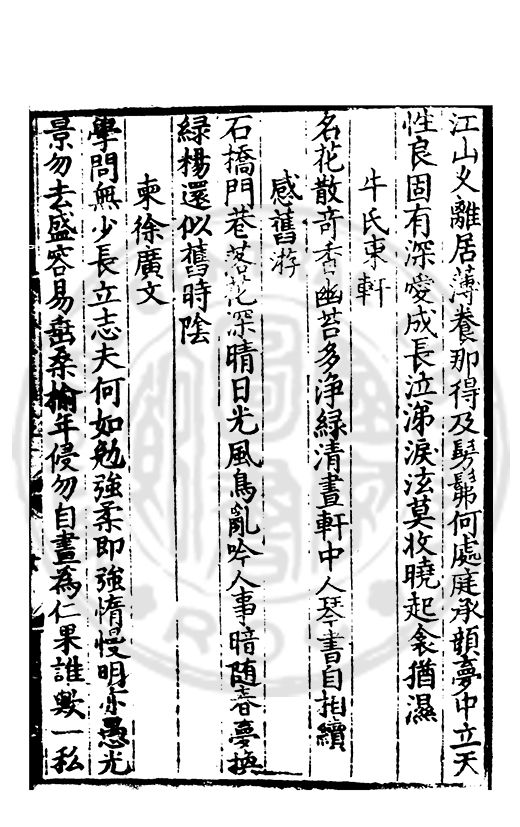 江山乂離居薄養那得及髣髴何處庭承顔夢中立天
性良固有深愛成長泣涕淚泫莫收曉起衾猶濕
牛氏東軒
名花散奇香幽苔多淨綠清晝軒中人琴書自相續
感舊游
石橋門巷落花深晴日光風鳥亂吟人事暗随春夢換
緑楊還似舊時陰
柬徐廣文
學問無少長立志夫何如勉強柔即強惰慢明亦愚光
景勿去盛容易岳桑榆年侵勿自畫為仁果誰數一私